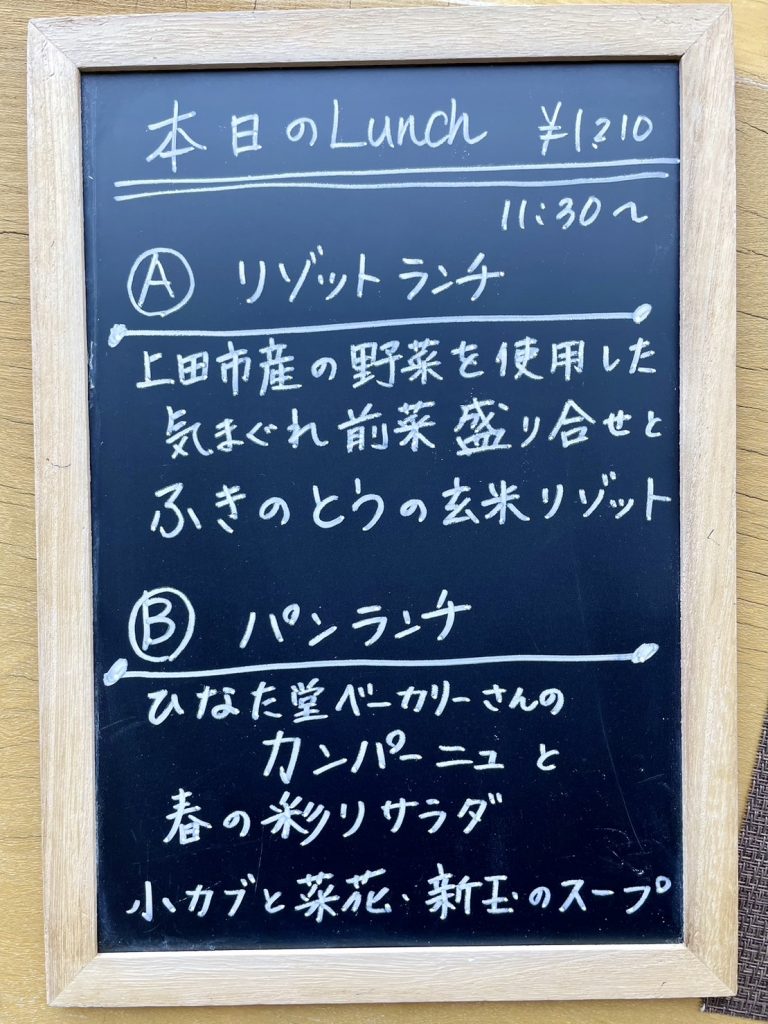 本日のLunch ¥1,210
11:30~
Ⓐ リゾットランチ
上田市産の野菜を使用した
気まぐれ前菜盛り合せと
ふきのとうの玄米リゾット
Ⓑ パンランチ
ひなた堂ベーカリーさんの
カンパーニュと
春の彩りサラダ
小カブと菜花・新玉のスープ